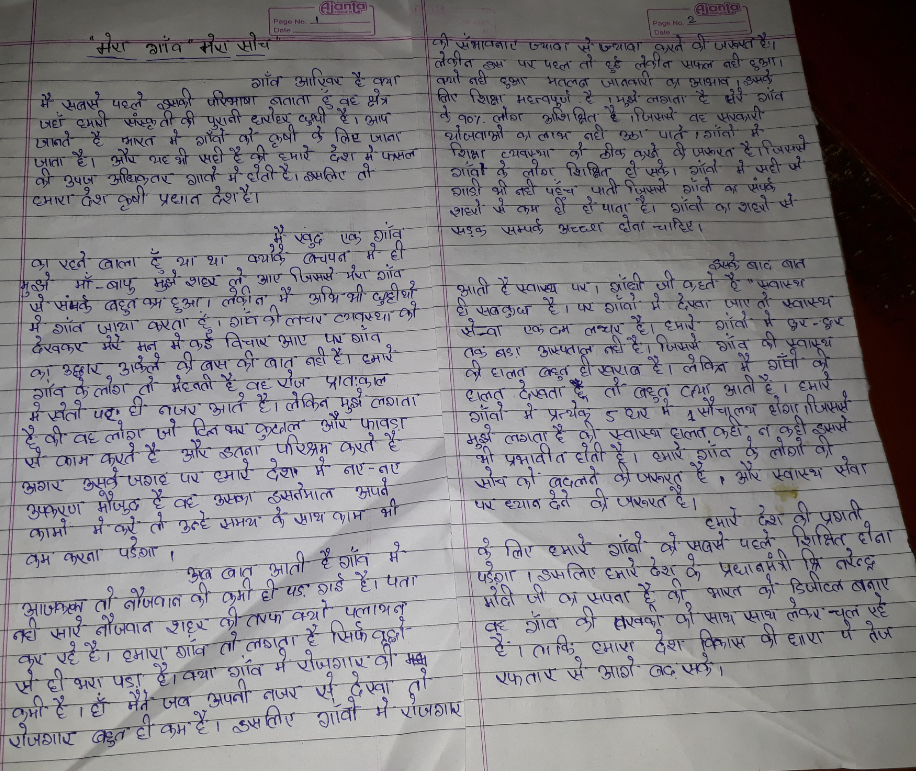 Ajanta
Page No. 1
Date
"मेरा गाँव" मेरा सोच"
गाँव आखिर है क्या
मैं सबसे पहले इसकी परिभाषा बताता हूँ वह क्षेत्र
जहाँ हमारी संस्कृती की पुरानी धरोहर कृषी है। आप
जानते है भारत में गाँवों को कृषी के लिए जाना
जाता है। और यह भी सही है की हमारे देश में फसल
की उपज अधिकतर गावों में होती है। इसलिए तो
हमारा देश कृषी प्रधान देश है।
मैं खुद एक गाँव
का रहने वाला हूँ या था क्योंकि बचपन में ही
मुझे माँ-बापू मुझे शहर ले आए जिससे मेरा गाँव
से संपर्क बहुत कम हुआ। लेकीन मैं अभि भी छुट्टीयों
में गाँव जाया करता हूँ। गाँव की लचर व्यवस्था को
देखकर मेरे मन में कई विचार आए पर गाँव
का उद्धार अकेले की बस की बात नही है। हमारे
गाँव के लोग तो मेहनती है वह रोज प्रातःकाल
में खेतों पर ही नजर आते है। लेकिन मुझे लगता
है की वह लोग जो दिन भर कुदाल और फावडा
से काम करते है और इतना परिश्रम करते है
अगर उसके जगह पर हमारे देश में नए-नए
उपकरण मौजुद है वह उसका इस्तेमाल अपने
कामों में करे तो उन्हे समय के साथ काम भी
कम करना पडेगा।
अब बात आती है गाँव में
आजकल तो नौजवान की कमी ही पड गई है। पता
नही सारे नौजवान शहर की तरफ क्यों पलायन
कर रहे है। हमारा गाँव तो लगता है सिर्फ बुढ्ढो
से ही भरा पडा है। क्या गाँव में रोजगार की
कमी है। हाँ मैंने जब अपनी नजर से देखा तो
रोजगार बहुत ही कम है। इसलिए गावों में रोजगार
Ajanta
Page No. 2
Date
की संभावनाए ज्यादा से ज्यादा करने की जरूरत है।
लेकीन इस पर पहल तो हुई लेकीन सफल नही हुआ।
क्यों नही हुआ मतलब जानकारी का अभाव। इसके
लिए शिक्षा महत्वपुर्ण है। मुझे लगता है मेरे गाँव
के 90% लोग अशिक्षित है, जिससे वह सरकारी
योजनाओं का लाभ नही उठा पाते। गाँवों में
शिक्षा व्यवस्था को ठीक करने की जरूरत है। जिससे
गाँवों के लोग शिक्षित हो सके। गाँवों में सही से
गाडी भी नही पहुँच पाती जिससे गाँवों का संपर्क
शहरों से कम ही हो पाता है। गाँवों का शहरों से
सड़क सम्पर्क अच्छा होना चाहिए।
इसके बाद बात
आती है स्वास्थ पर। गाँधी जी कहते है "स्वास्थ
ही सबकुछ है। पर गाँवों में देखा जाए तो स्वास्थ
सेवा एकदम लचर है। हमारे गाँवों में दूर-दूर
तक बडा अस्पताल नही है। जिससे गाँव की स्वास्थ
की हालत बहुत ही खराब है। लेकिन मैं गाँवों की
हालत देखता हूँ तो बहुत दया आती है। हमारे
गाँवों में प्रत्येक 5 घर में 1 सौचालय होगा। जिससे
मुझे लगता है की स्वास्थ हालत कही न कही इससे
भी प्रभातीत होती है। हमारे गाँव के लोगों की
सोच को बदलने की जरूरत है, और स्वास्थ सेवा
पर ध्यान देने की जरूरत है।
हमारे देश की प्रगती
के लिए हमारे गाँवों को सबसे पहले शिक्षित होना
पडेगा। इसलिए हमारे देश के प्रधानमंत्री श्रि नरेन्द्र
मोदी जी का सपना है की भारत को डिजीटल बनाए
वह गाँव की तरक्की को साथ साथ लेकर चल रहे
है। ताकि हमारा देश विकास की धारा पे तेज
रफतार से आगे बढ़ सके।